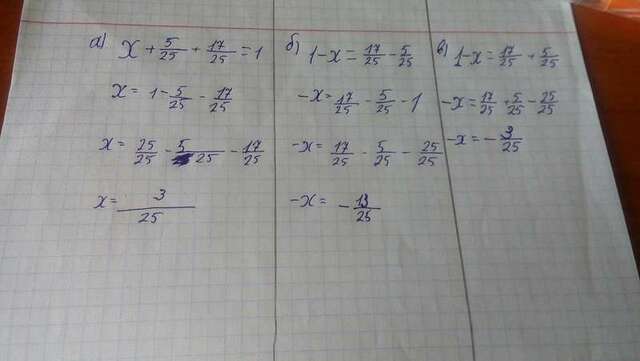 а) x + 5/25 + 17/25 = 1
x = 1 - 5/25 - 17/25
x = 25/25 - 5/25 - 17/25
x = 3/25
б) 1 - x = 17/25 - 5/25
-x = 17/25 - 5/25 - 1
-x = 17/25 - 5/25 - 25/25
-x = - 13/25
в) 1 - x = 17/25 + 5/25
-x = 17/25 + 5/25 - 25/25
-x = - 3/25